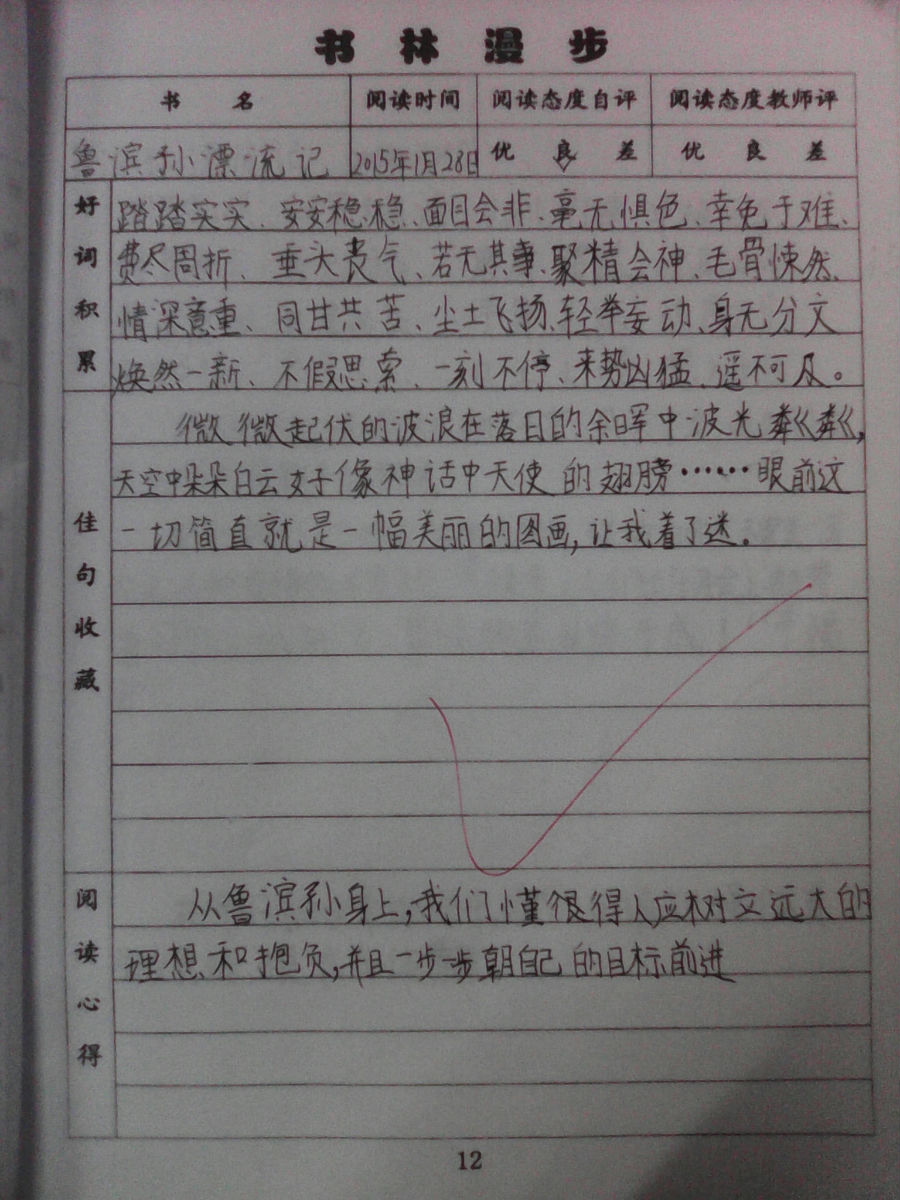 书林漫步
书名 阅读时间 阅读态度自评 阅读态度教师评
鲁滨孙漂流记 2015年1月28日 优 良 差 优 良 差
好词积累
踏踏实实、安安稳稳、面目会非、毫无惧色、幸免于难、
费尽周折、垂头丧气、若无其事、聚精会神、毛骨悚然、
情深意重、同甘共苦、尘土飞扬、轻举妄动、身无分文
焕然一新、不假思索、一刻不停、来势凶猛、遥不可及。
佳句收藏
微微起伏的波浪在落日的余晖中波光粼粼,
天空中朵朵白云好像神话中天使的翅膀……眼前这
一切简直就是一幅美丽的图画,让我着了迷。
阅读心得
从鲁滨孙身上,我们懂得人应树立远大的
理想和抱负,并且一步一步朝自己的目标前进
12